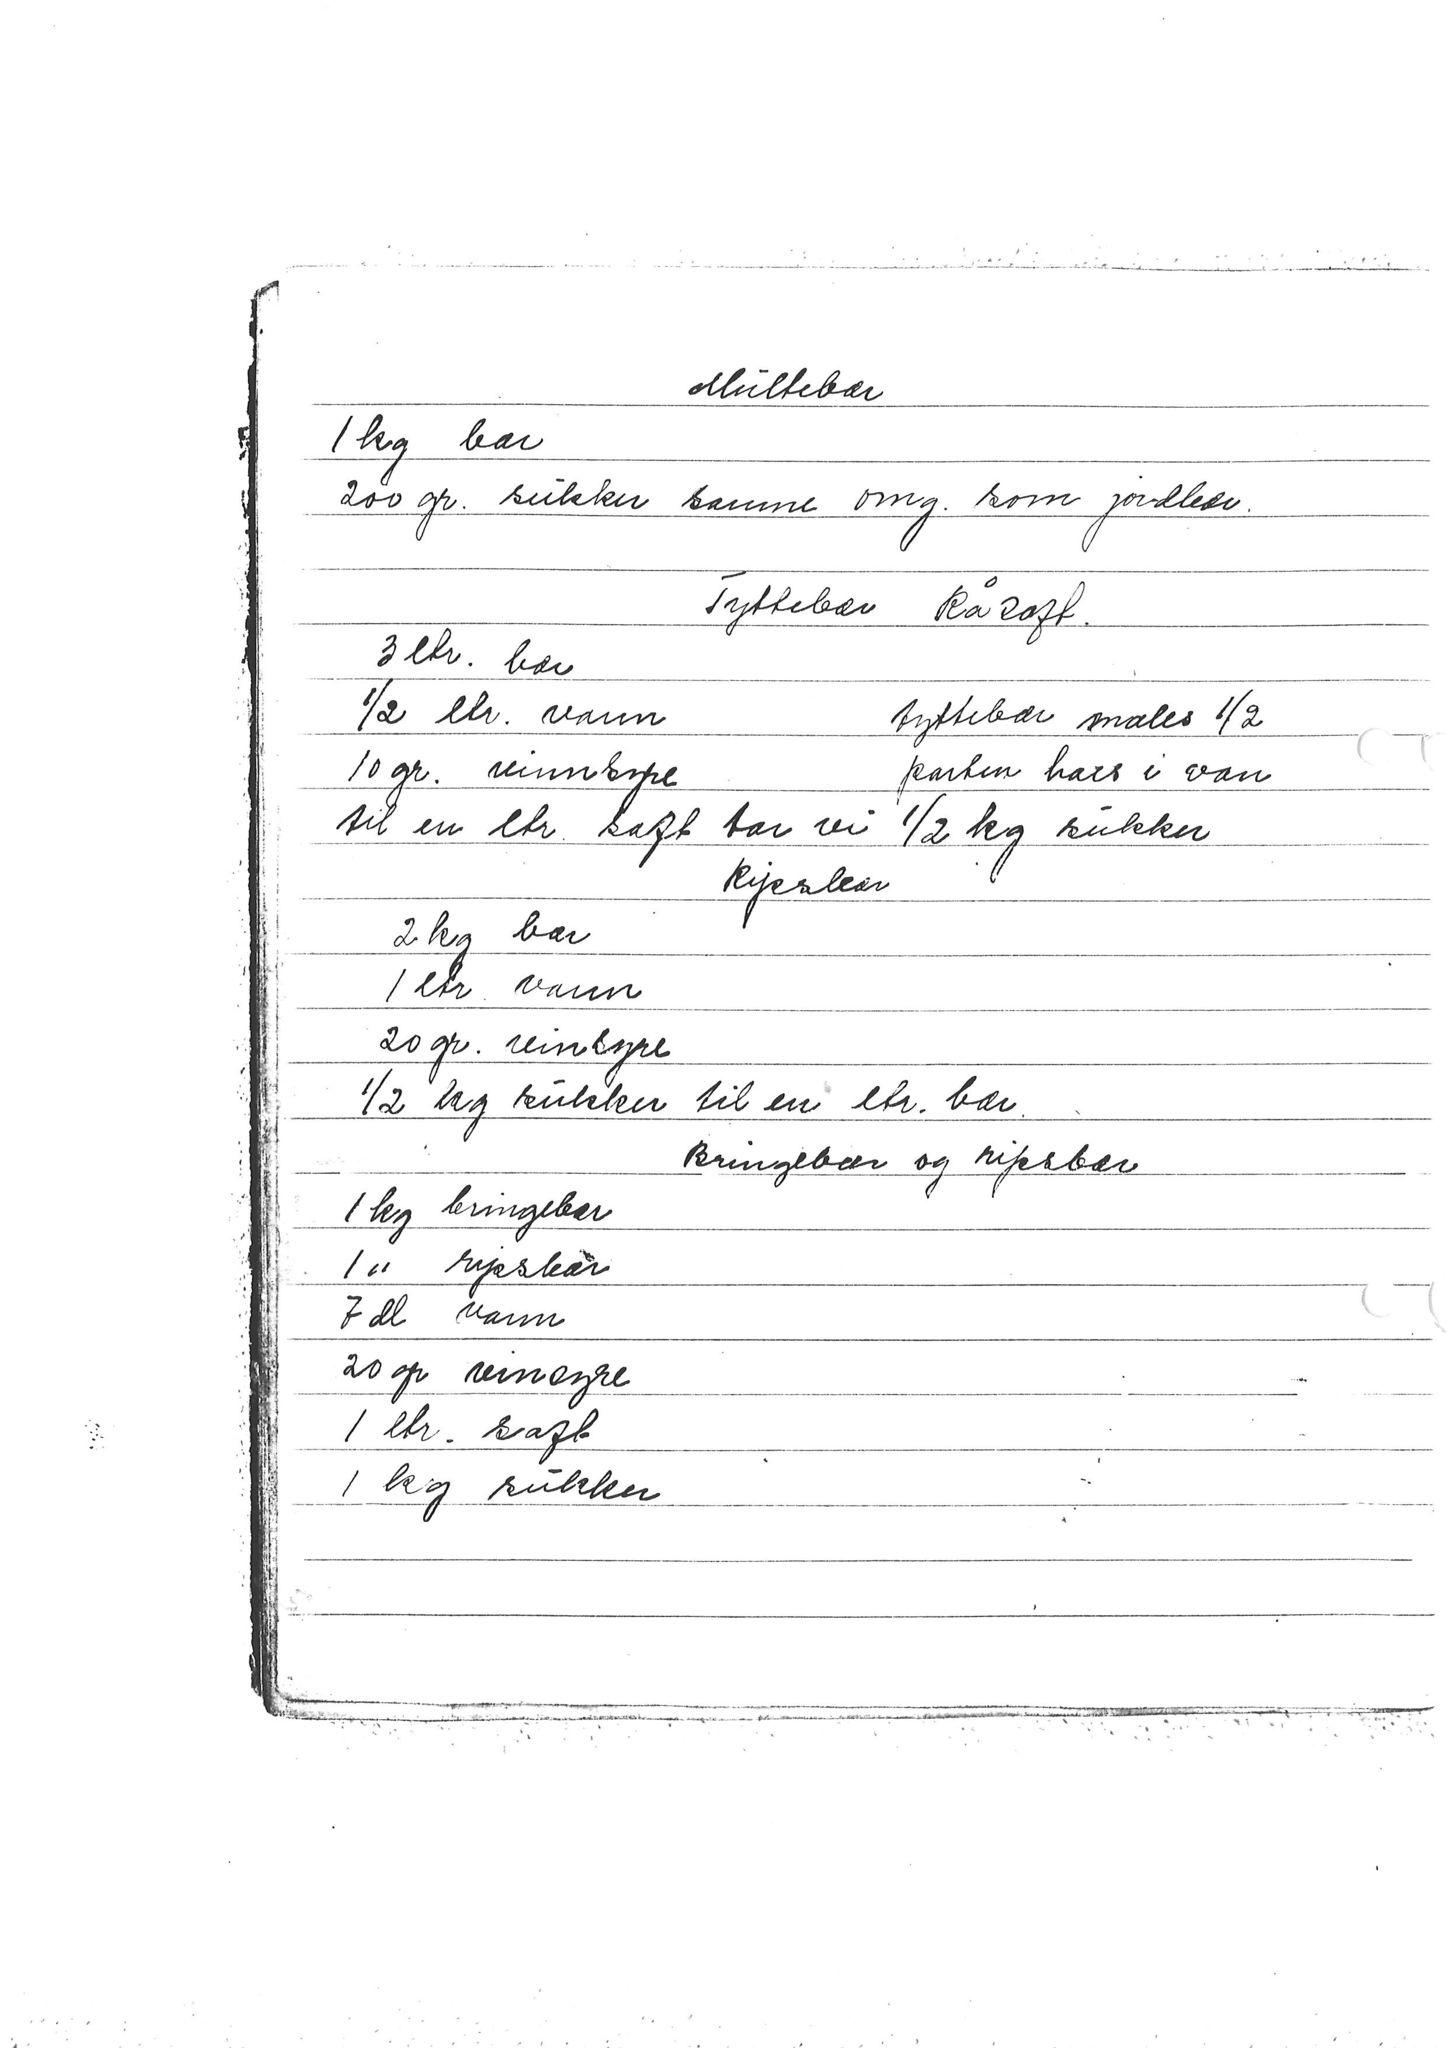 Multebær
1 kg bær
200 gr. sukker samme omg. som jordbær.
Tyttebær Råsaft.
3 ltr. bær
1/2 ltr. vann tyttebær males 1/2
10 gr. vinnsyre parten haes i van
til en ltr. saft tar vi 1/2 kg sukker
Ripsbær
2 kg bær
1 ltr. vann
20 gr. vinsyre
1/2 kg sukker til en ltr. bær.
Bringebær og ripsbær
1 kg bringebær
1 " ripsbær
7 dl vann
20 gr vinsyre
1 ltr. saft
1 kg sukker